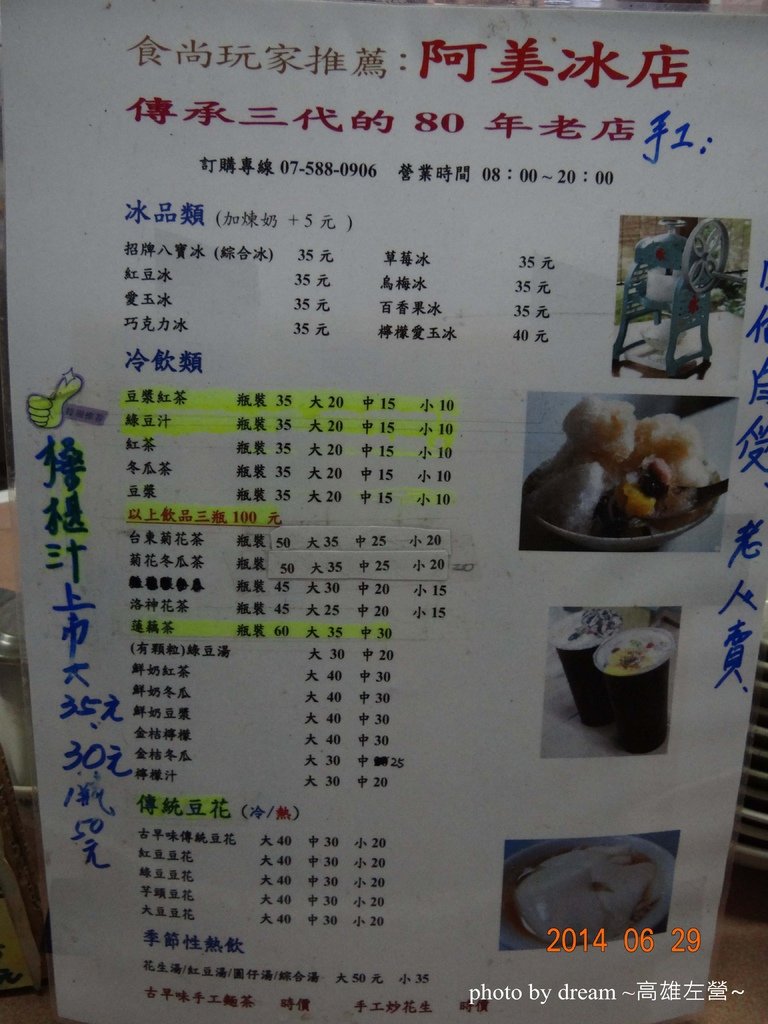 食尚玩家推薦:阿美冰店
傳承三代的 80 年老店
手工:
訂購專線 07-588-0906 營業時間 08:00~20:00
冰品類 (加煉奶 +5 元 )
招牌八寶冰 (綜合冰) 35 元 草莓冰 35 元
紅豆冰 35 元 烏梅冰 35 元
愛玉冰 35 元 百香果冰 35 元
巧克力冰 35 元 檸檬愛玉冰 40 元
冷飲類
豆漿紅茶 瓶裝 35 大 20 中 15 小 10
綠豆汁 瓶裝 35 大 20 中 15 小 10
紅茶 瓶裝 35 大 20 中 15 小 10
冬瓜茶 瓶裝 35 大 20 中 15 小 10
豆漿 瓶裝 35 大 20 中 15 小 10
以上飲品三瓶 100 元
台東菊花茶 瓶裝 50 大 35 中 25 小 20
菊花冬瓜茶 瓶裝 50 大 35 中 25 小 20
瓶裝 45 大 30 中 20 小 15
洛神花茶 瓶裝 45 大 25 中 20 小 15
蓮藕茶 瓶裝 60 大 35 中 30
(有顆粒)綠豆湯 大 30 中 20
鮮奶紅茶 大 40 中 30
鮮奶冬瓜 大 40 中 30
鮮奶豆漿 大 40 中 30
金桔檸檬 大 40 中 30
金桔冬瓜 大 30 中 25
檸檬汁 大 30 中 20
傳統豆花 (冷/熱)
古早味傳統豆花 大 40 中 30 小 20
紅豆豆花 大 40 中 30 小 20
綠豆豆花 大 40 中 30 小 20
芋頭豆花 大 40 中 30 小 20
大豆豆花 大 40 中 30 小 20
季節性熱飲
花生湯/紅豆湯/圓仔湯/綜合湯 大 50 元 小 35
古早味手工麵茶 時價 手工炒花生 時價
汁上市大
35元
30元
1瓶
50元
老人賣
2014 06 29
photo by dream ~高雄左營~